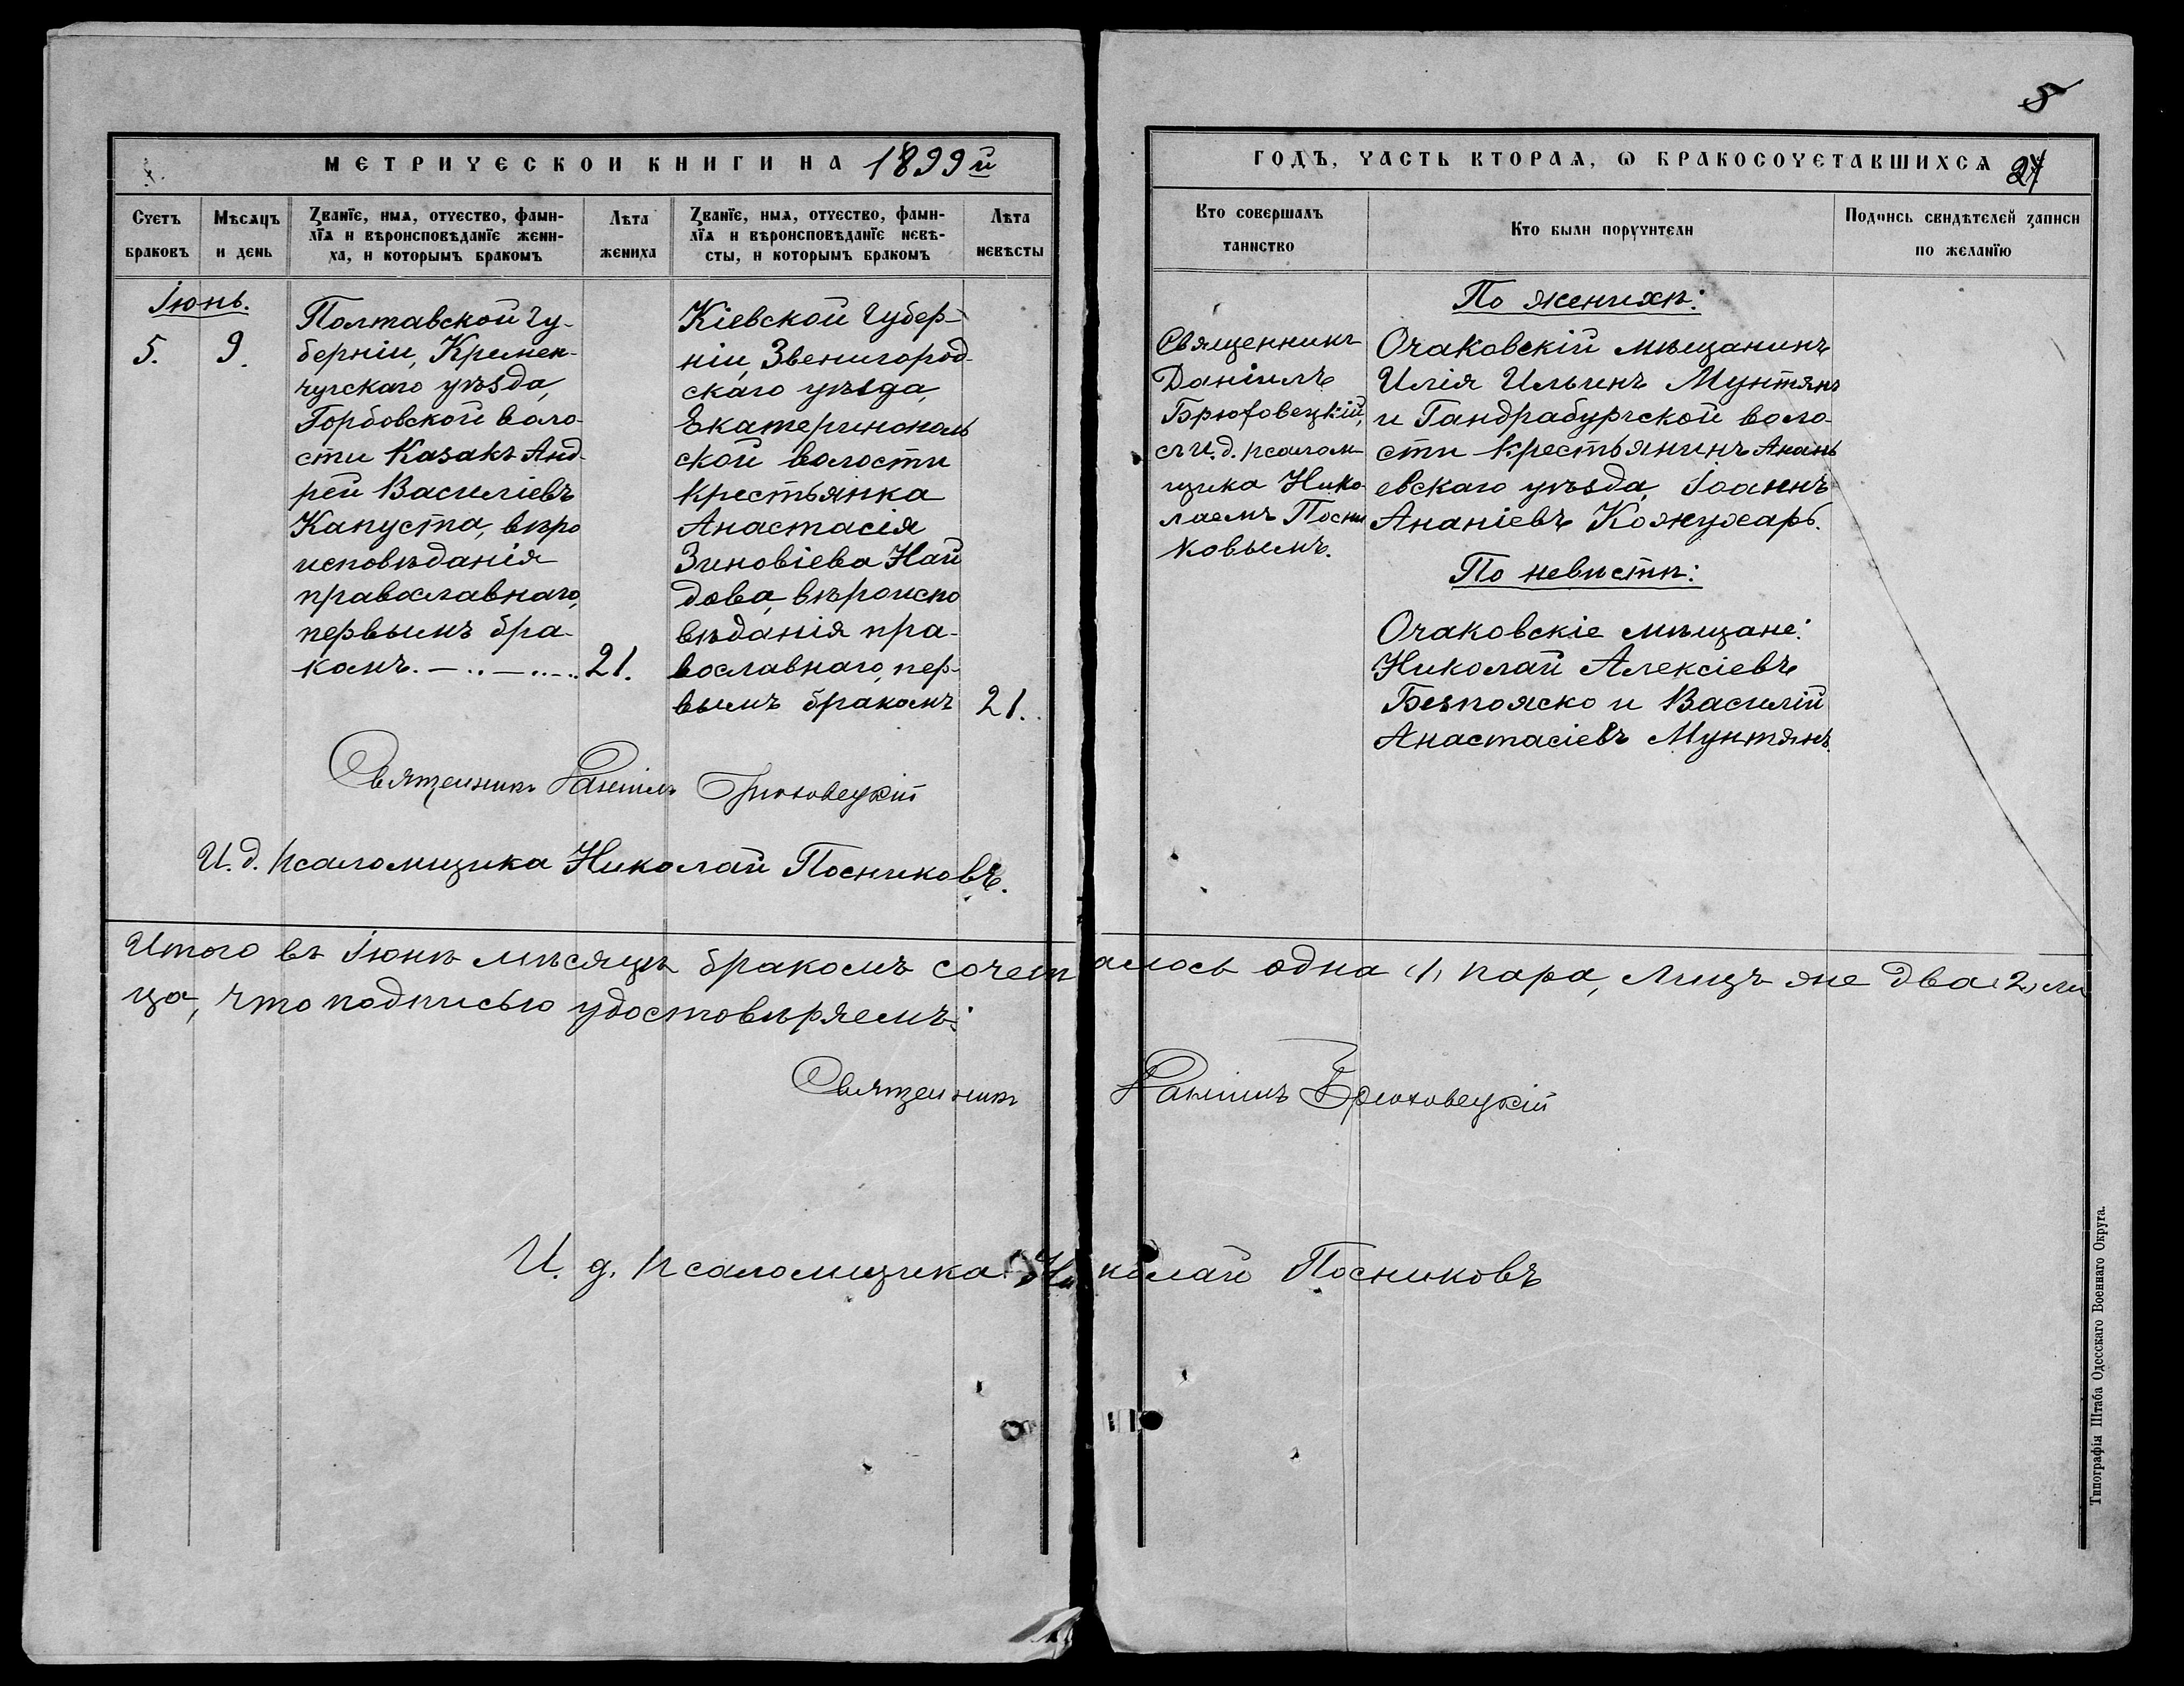 5
МЕТРИЧЕСКОЙ КНИГИ НА 1899й
ГОДЪ, ЧАСТЬ ВТОРАѦ, Ѡ БРАКОСОЧЕТАВШИХСѦ
Счетъ браковъ
Мѣсѧцъ и день
Званїе, имѧ, отчество, фами-
лїѧ и вѣроисповѣданїе жени-
ха, и которымъ бракомъ
Лѣта жениха
Званїе, имѧ, отчество, фами-
лїѧ и вѣроисповѣданїе невѣ-
сты, и которымъ бракомъ
Лѣта невѣсты
Кто совершалъ таинство
Кто были поручители
Подпись свидѣтелей записи по желанїю
Іюнь.
5.
9.
Полтавской гу-
берніи, Кремен-
чугскаго уѣзда,
Горбовской воло-
сти казакъ Анд-
рей Василіевъ
Капуста, вѣро
исповѣданія
православнаго,
первымъ бра-
комъ.
21.
Кіевской губер-
ніи, Звенигород-
скаго уѣзда,
Екатеринополь
ской волости
крестьянка
Анастасія
Зиновіева Най
дова, вѣроиспо
вѣданія пра-
вославнаго, пер-
вымъ бракомъ
21.
Священникъ
Даніилъ
Брюховецкій,
съ и. д. псалом
щика Нико
лаемъ Посни
ковымъ.
По женихѣ:
Очаковскій мѣщанинъ
Илія Ильинъ Мунтянъ
и Гандрабурской воло-
сти крестьянинъ Анань
евскаго уѣзда, Іоаннъ
Ананіевъ Кожухарь.
По невѣстѣ:
Очаковскіе мѣщане:
Николай Алексіевъ
Безпояско и Василій
Анастасіевъ Мунтянъ.
Священникъ Даніилъ Брюховецкій
И. д. псаломщика Николай Посниковъ.
Итого въ Іюнѣ мѣсяцѣ бракомъ сочеталось одна (1) пара, лицъ же два (2) ли
ца, что подписью удостовѣряемъ:
Священникъ Даніилъ Брюховецкій
И. д. псаломщика Николай Посниковъ
Типографія Штаба Одесскаго Военнаго Округа.